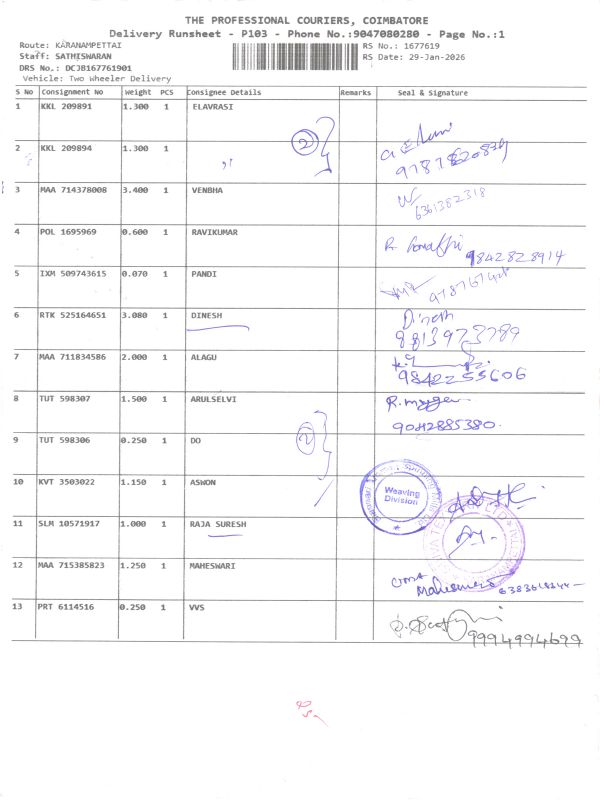 THE PROFESSIONAL COURIERS, COIMBATORE
Delivery Runsheet - P103 - Phone No.:9047080280 - Page No.:1
Route: KARANAMPETTAI RS No.: 1677619
Staff: SATHISWARAN RS Date: 29-Jan-2026
DRS No.: DCJB167761901
Vehicle: Two Wheeler Delivery
S No Consignment No Weight PCS Consignee Details Remarks Seal & Signature
1 KKL 209891 1.300 1 ELAVRASI
2 KKL 209894 1.300 1 ,, 2
3 MAA 714378008 3.400 1 VENBHA 6361382318
4 POL 1695969 0.600 1 RAVIKUMAR 9842828914
5 IXM 509743615 0.070 1 PANDI
6 RTK 525164651 3.080 1 DINESH Dinesh
7 MAA 711834586 2.000 1 ALAGU 9842255606
8 TUT 598307 1.500 1 ARULSELVI 9042885380
9 TUT 598306 0.250 1 DO 2
10 KVT 3503022 1.150 1 ASWON Weaving Division
11 SLM 10571917 1.000 1 RAJA SURESH
12 MAA 715385823 1.250 1 MAHESWARI UMA Maheswari
13 PRT 6114516 0.250 1 VVS 9994994699